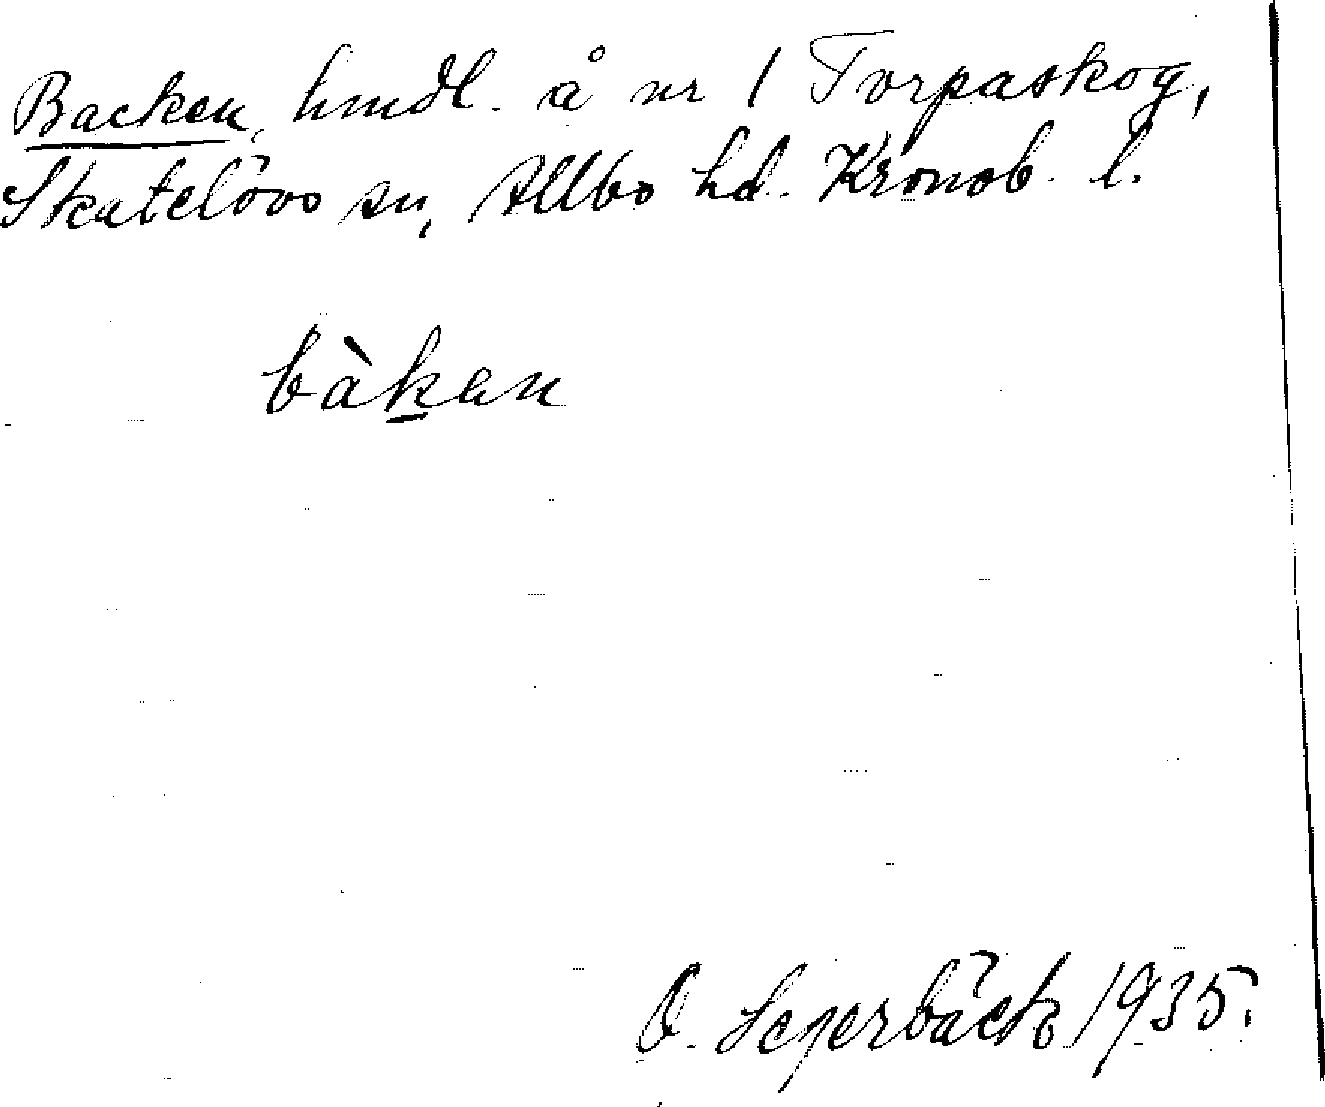 Backen, hmdl. å nr 1 Torpaskog,
Skatelövs sn, Allbo hd. Kronob. l.
bàkan
O. Sejerbäck 1935.